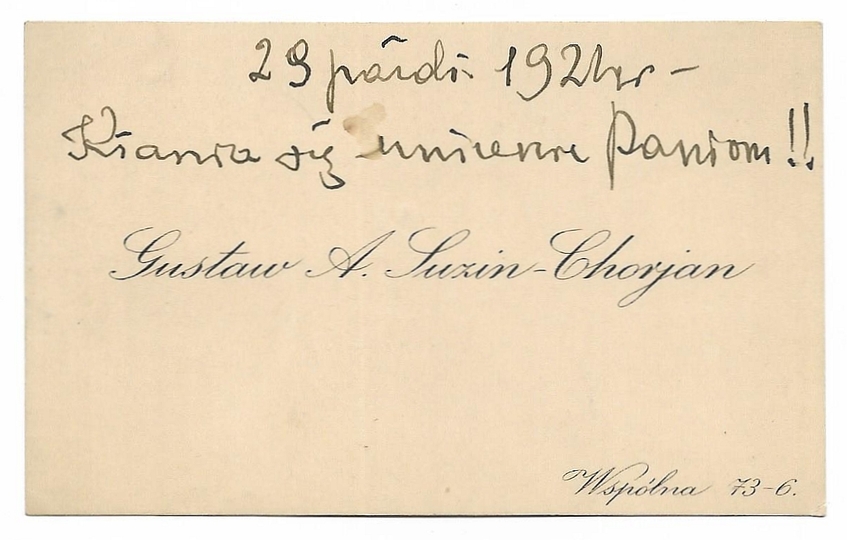 29 paźdz. 1921 r. –
Kłania się uniżenie Paniom!!
Gustaw A. Suzin-Chorjan
Wspólna 73-6.